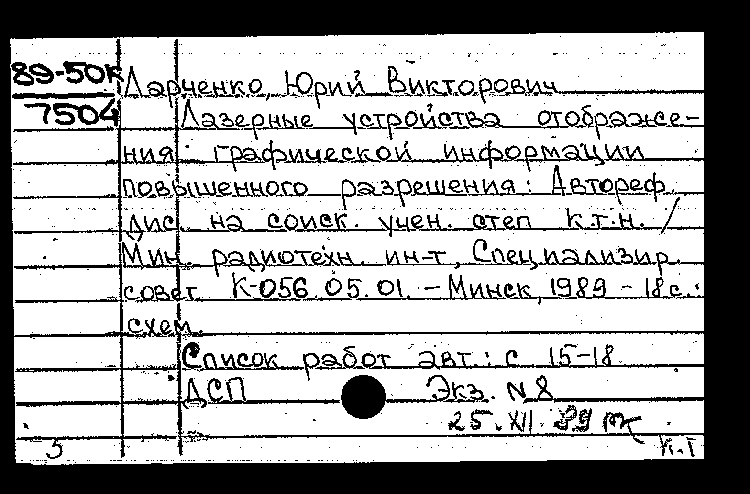 89-50к
7504
Ларченко, Юрий Викторович
Лазерные устройства отображе-
ния графической информации
повышенного разрешения: Автореф.
дис. на соиск. учен. степ к.т.н. /
Мин. радиотехн. ин-т, Специализир.
совет К-056.05.01. - Минск, 1989 - 18 с.:
схем.
Список работ авт.: с 15-18
ДСП Экз. N 8
25.XII.89
5